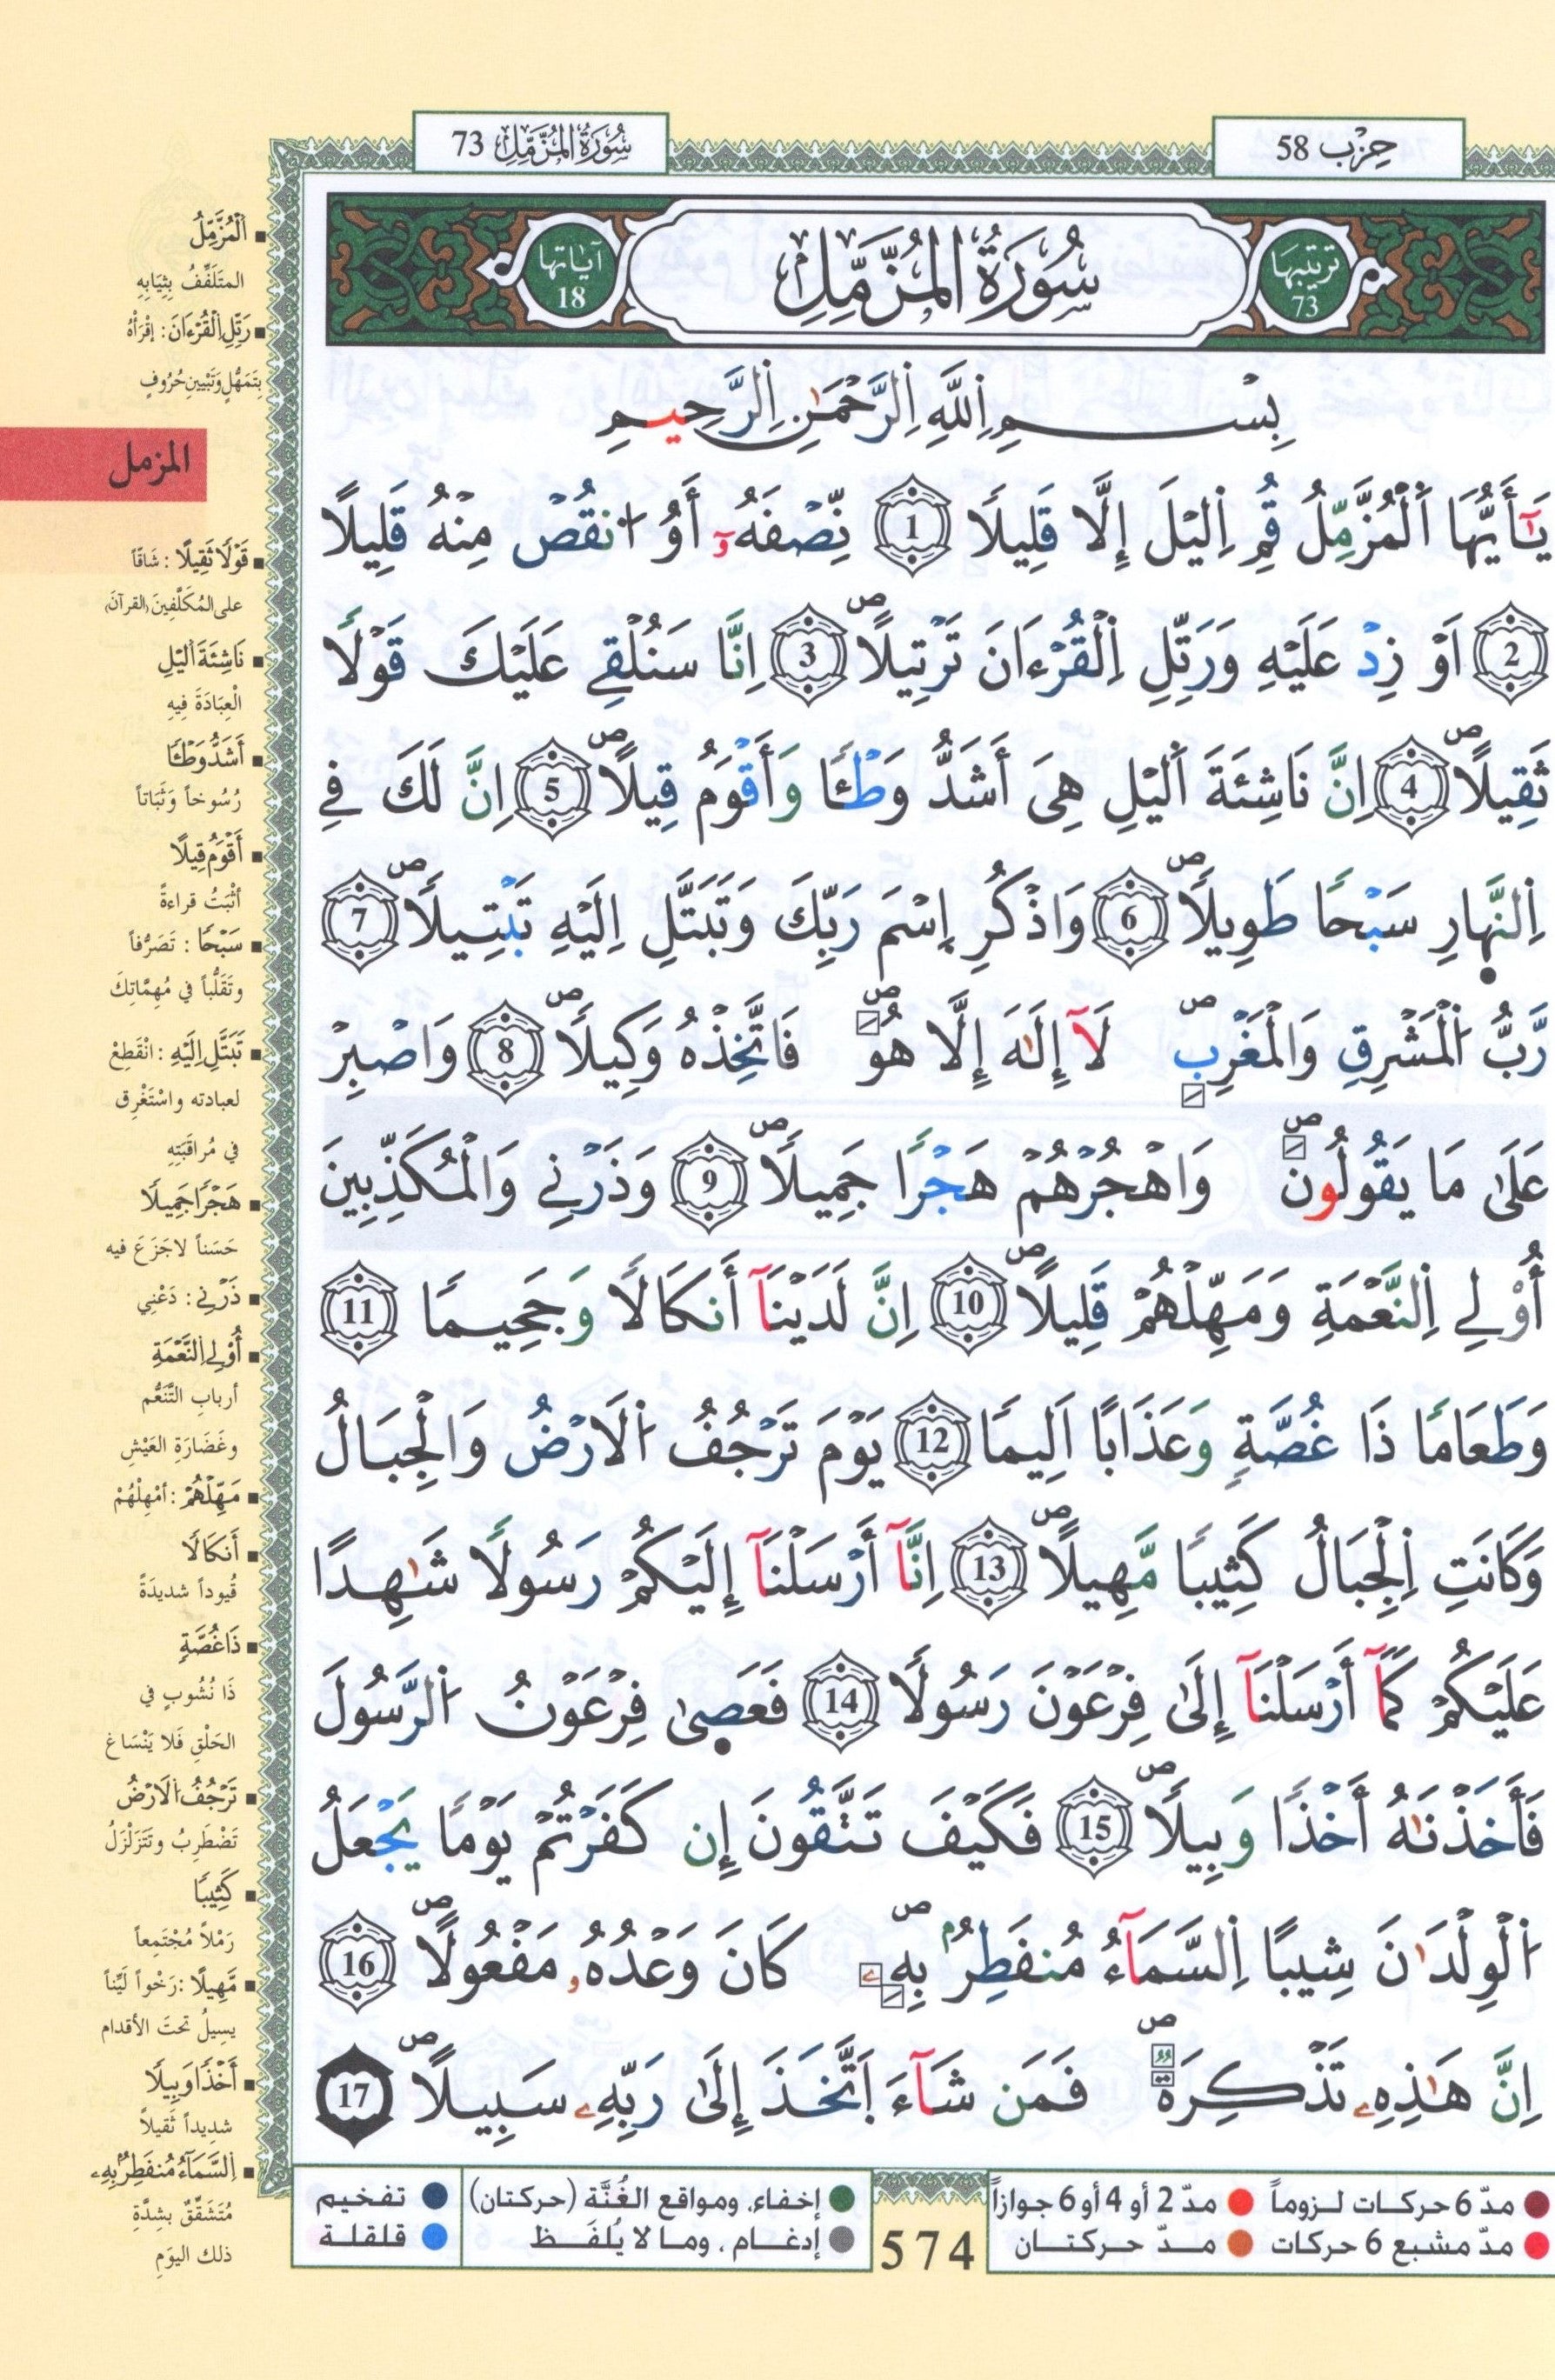 سُورَةُ المُزَّمِّلِ 73
حِزْب 58
ترتيبها 73
سُورَةُ المُزَّمِّلِ
آياتها 18
بِسْمِ اِ۬للَّهِ اِ۬لرَّحْمَٰنِ اِ۬لرَّحِيمِ
يَٰٓأَيُّهَا اَ۬لْمُزَّمِّلُ قُمِ اِ۬ليْلَ إِلَّا قَلِيلًا 1 نِّصْفَهُۥٓ أَوُ ا۟نقُصْ مِنْهُ قَلِيلًا
2 اَوْ زِدْ عَلَيْهِ وَرَتِّلِ اِ۬لْقُرْءَانَ تَرْتِيلًا 3 اِنَّا سَنُلْقِے عَلَيْكَ قَوْلًا
ثَقِيلًا 4 اِنَّ نَاشِئَةَ اَ۬ليْلِ هِيَ أَشَدُّ وَطْـًٔا وَأَقْوَمُ قِيلًا 5 اِنَّ لَكَ فِے
اِ۬لنَّهارِ سَبْحًا طَوِيلًا 6 وَاذْكُرِ اِسْمَ رَبِّكَ وَتَبَتَّلِ اِلَيْهِ تَبْتِيلًا 7
رَّبُّ اُ۬لْمَشْرِقِ وَالْمَغْرِبِ لَآ إِلَٰهَ إِلَّا هُوَ فَاتَّخِذْهُ وَكِيلًا 8 وَاصْبِرْ
عَلَىٰ مَا يَقُولُونَ وَاهْجُرْهُمْ هَجْرًا جَمِيلًا 9 وَذَرْنِے وَالْمُكَذِّبِينَ
أُوْلِے اِ۬لنَّعْمَةِ وَمَهِّلْهُمْ قَلِيلًا 10 اِنَّ لَدَيْنَآ أَنكَالًا وَجَحِيمًا 11
وَطَعَامًا ذَا غُصَّةٍ وَعَذَابًا اَلِيمًا 12 يَوْمَ تَرْجُفُ اُ۬لَارْضُ وَالْجِبَالُ
وَكَانَتِ اِ۬لْجِبَالُ كَثِيبًا مَّهِيلًا 13 اِنَّآ أَرْسَلْنَآ إِلَيْكُمْ رَسُولًا شَٰهِدًا
عَلَيْكُمْ كَمَآ أَرْسَلْنَآ إِلَىٰ فِرْعَوْنَ رَسُولًا 14 فَعَصِىٰ فِرْعَوْنُ اُ۬لرَّسُولَ
فَأَخَذْنَٰهُ أَخْذًا وَبِيلًا 15 فَكَيْفَ تَتَّقُونَ إِن كَفَرْتُمْ يَوْمًا يَجْعَلُ
اُ۬لْوِلْدَٰنَ شِيبًا اِ۬لسَّمَآءُ مُنفَطِرٌۢ بِهِۦ كَانَ وَعْدُهُۥ مَفْعُولًا 16
اِنَّ هَٰذِهِۦ تَذْكِرَةٌ فَمَن شَآءَ اَ۪تَّخَذَ إِلَىٰ رَبِّهِۦ سَبِيلًا 17
اَ۬لْمُزَّمِّلُ
المتَلَفِّفُ بِثِيَابِهِ
رَتِّلِ اِ۬لْقُرْءَانَ: اِقْرَأْهُ
بِتَمَهُّلٍ وَتَبْيِينِ حُرُوفٍ
المزمل
قَوْلًا ثَقِيلًا: شَاقّاً
على المُكَلَّفِينَ (القرآن)
نَاشِئَةَ اَ۬ليْلِ
الْعِبَادَةَ فِيهِ
أَشَدُّ وَطْـًٔا
رُسُوخاً وَثَبَاتاً
أَقْوَمُ قِيلًا
أَثْبَتُ قراءةً
سَبْحًا: تَصَرُّفاً
وتَقَلُّباً في مُهِمَّاتِكَ
تَبَتَّلِ اِلَيْهِ: انْقَطِعْ
لعبادته واسْتَغْرِق
في مُراقَبَتِهِ
هَجْرًا جَمِيلًا
حَسَناً لا جَزَعَ فيه
ذَرْنِے: دَعْنِي
أُوْلِے اِ۬لنَّعْمَةِ
أربابِ التَّنَعُّم
وغَضَارَةِ العَيْشِ
مَهِّلْهُمْ: أَمْهِلْهُمْ
أَنكَالًا
قُيوداً شديدَةً
ذَا غُصَّةٍ
ذَا نُشُوبٍ في
الحَلْقِ فَلا يَنْسَاغ
تَرْجُفُ اُ۬لَارْضُ
تَضْطَرِبُ وتَتَزَلْزَلُ
كَثِيبًا
رَمْلاً مُجْتَمِعاً
مَّهِيلًا: رَخْواً لَيِّناً
يسِيلُ تحتَ الأقدام
أَخْذًا وَبِيلًا
شديداً ثَقيلاً
اِ۬لسَّمَآءُ مُنفَطِرٌۢ بِهِۦ
مُتَشَقِّقٌ بشِدَّةِ
ذلك اليوَمِ
مدّ 6 حركات لـزوماً مدّ 2 أو 4 أو 6 جوازاً
مدّ مشبع 6 حركات مـدّ حـركتـان
574
إخفاء، ومواقع الغُنَّة (حركتان) تفخيم
إدغـام، ومـا لا يُلفَـظ قلقلـة